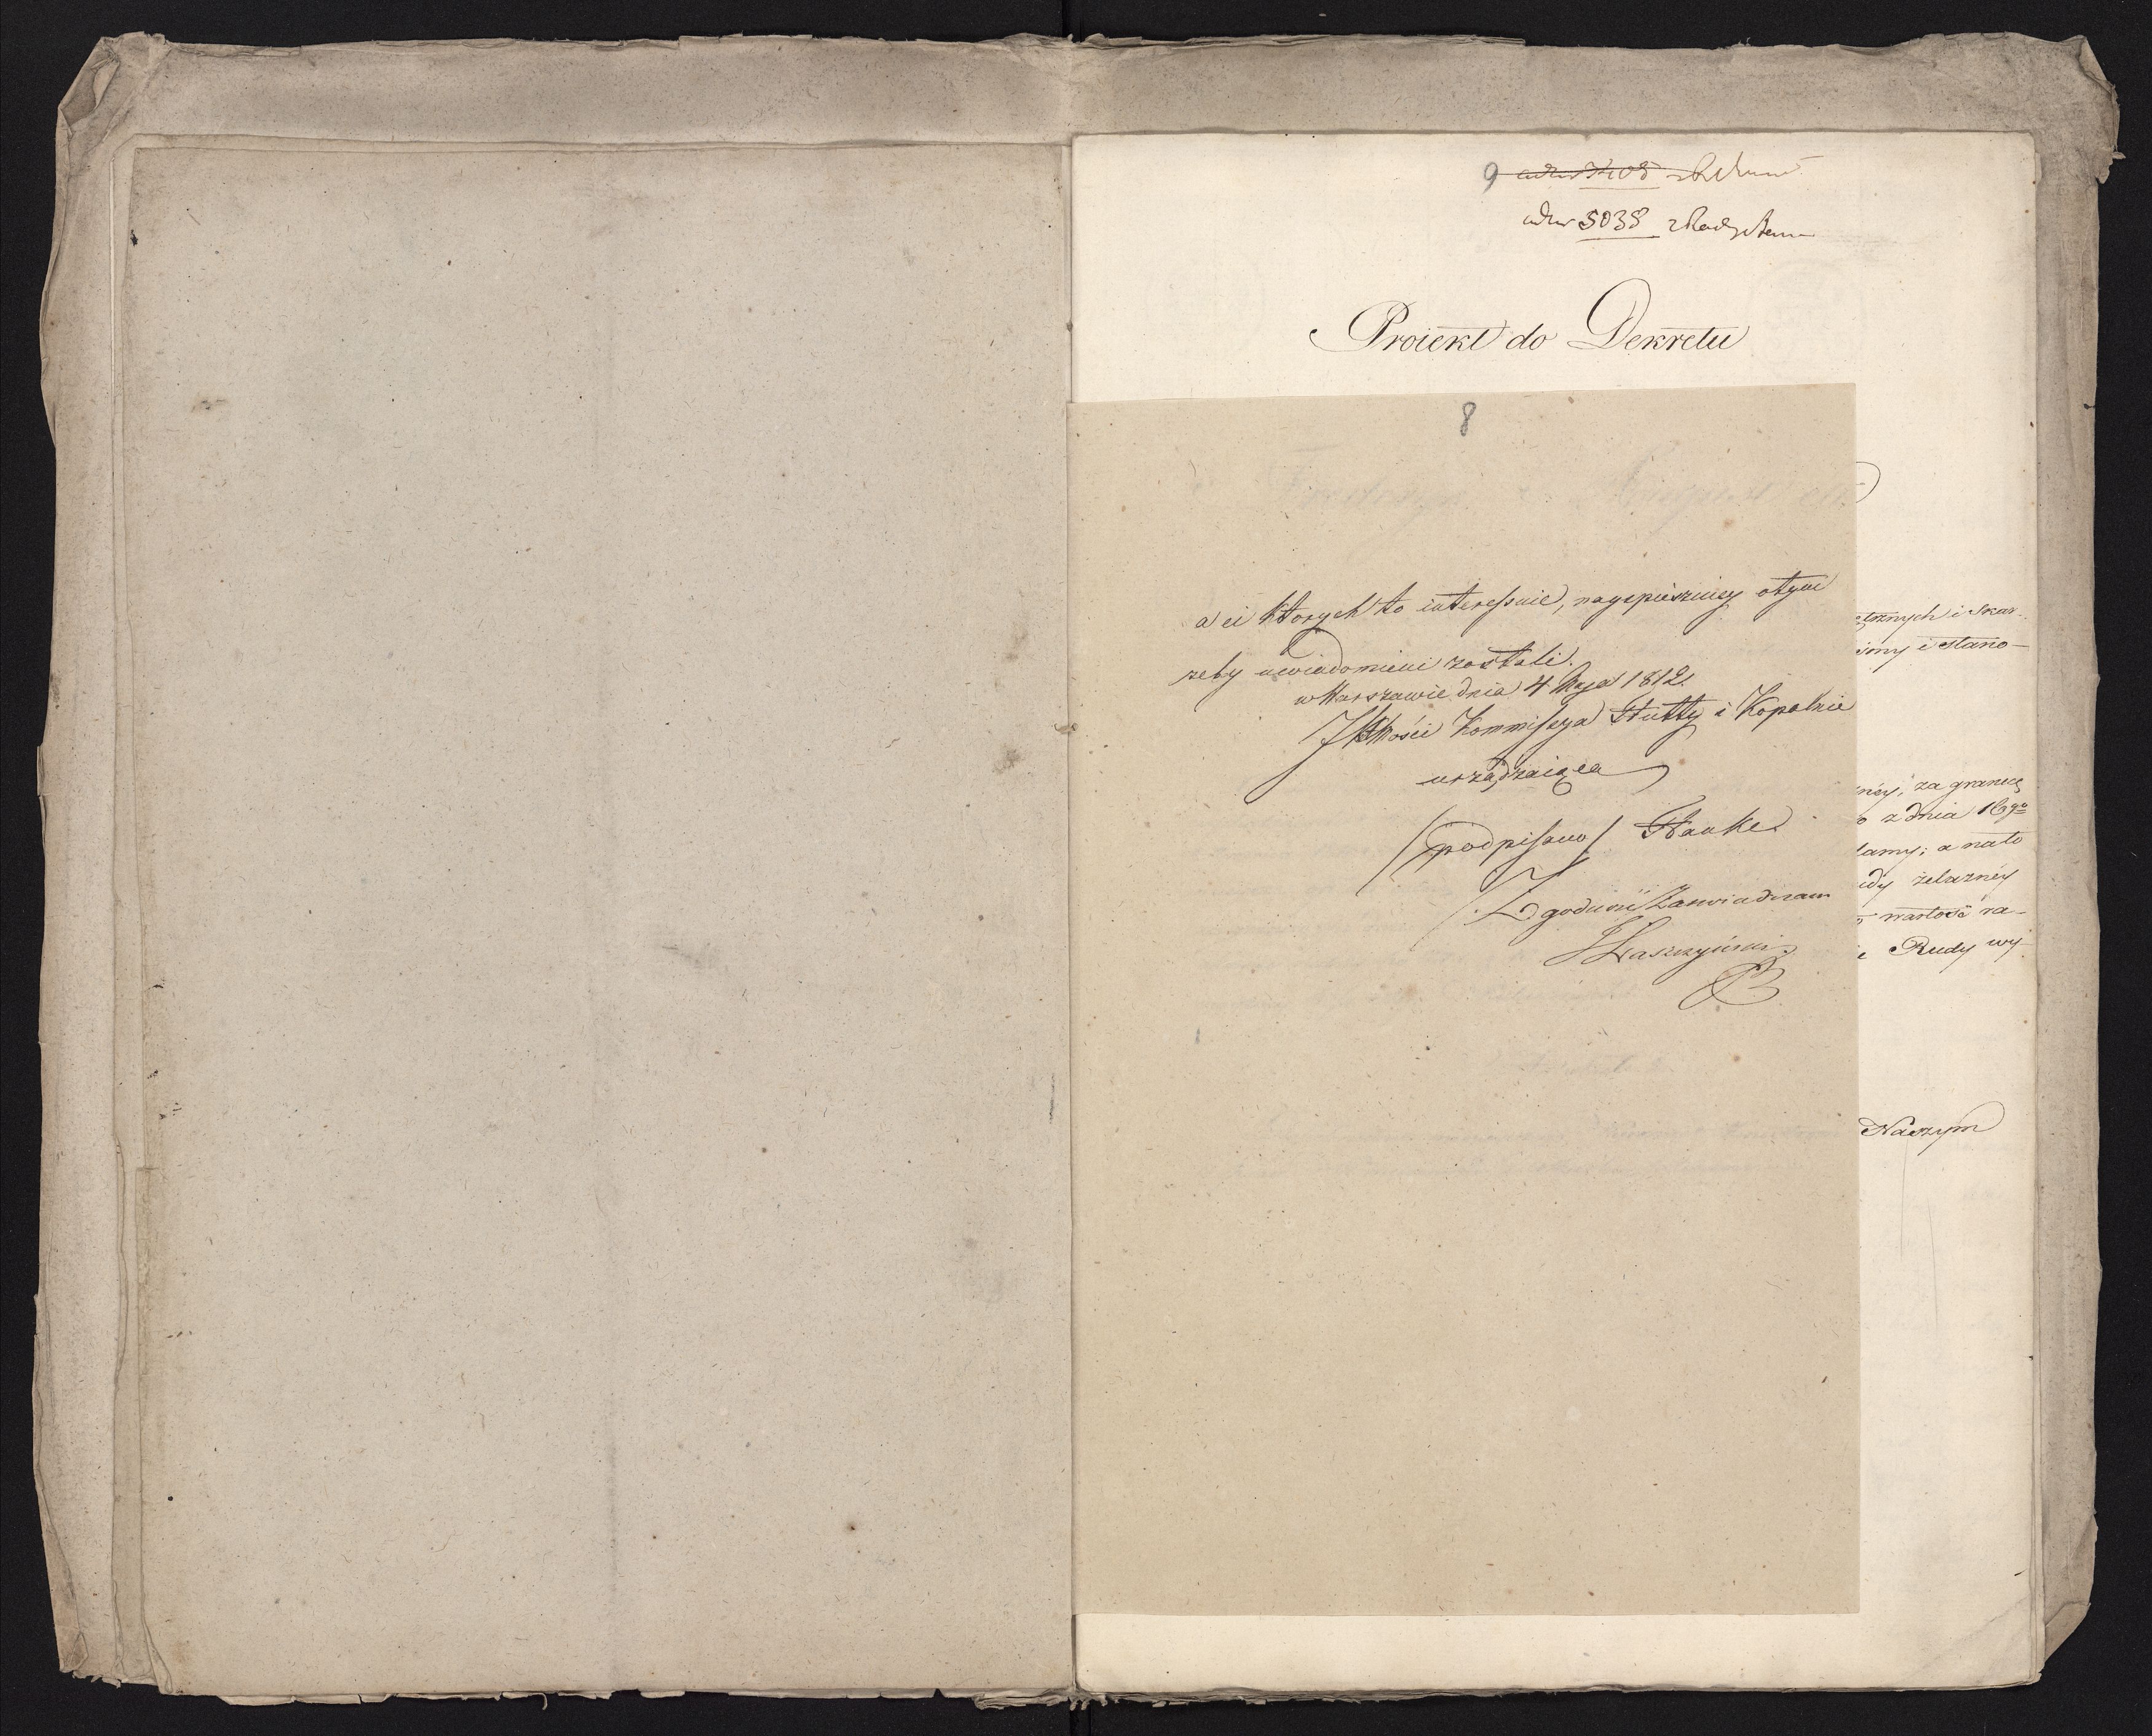 9
ad Nro 5038
Proiekt do Dekretu
8
a ci ktorych to interessuie, nayspieszniey o tym
żeby uwiadomieni zostali.
w Warszawie dnia 4 Maja 1812.
JKMości Kommissya Hutty i Kopalnie
urządzaiąca
/podpisano/ Hauke
Zgodność Zaswiadczam
Laszczyński
trznych i Skar-
i stano-
, za granicę
z dnia 16go
lamy; a na to
żelazney
wartość
Rudy wy-
Naszym